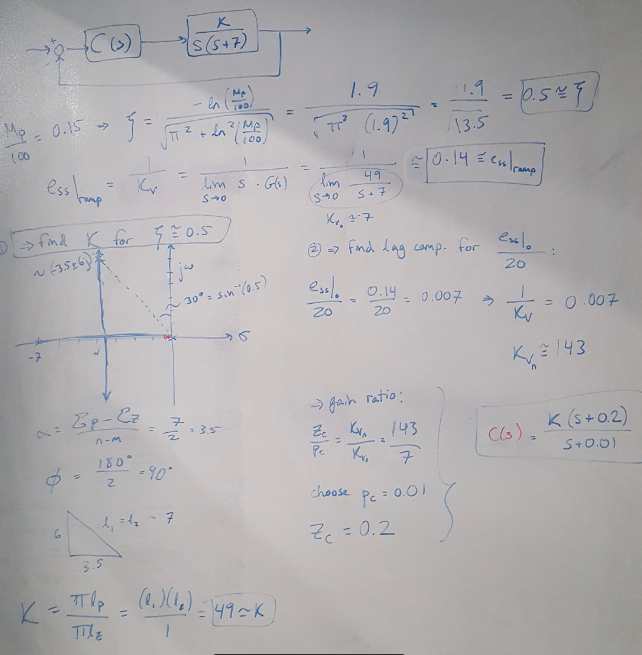 +
-
C(s)
K / s(s+7)
Mp/100 = 0.15 ⇒ ξ = -ln(Mp/100) / √(π² + ln²(Mp/100)) = 1.9 / √(π² (1.9)²) = 1.9 / √13.5 = 0.5 ≅ ξ
ess|ramp = 1/Kv = 1 / lim s→0 s · G(s) = 1 / lim s→0 49/(s+7) ≅ 0.14 ≅ ess|ramp
Kv₀ = 7
① ⇒ find K for ξ ≅ 0.5
~(-3.5±6j)
jω
30° = sin⁻¹(0.5)
σ
-7
α
α = (Σp - Σz)/(n-m) = 7/2 = 3.5
φ = 180°/2 = 90°
l₁ = l₂ ~ 7
6
3.5
K = πlp/πlz = (l₁)(l₂)/1 = 49 ≃ K
② ⇒ find lag comp. for ess|₀/20 :
ess|₀/20 = 0.14/20 = 0.007 ⇒ 1/Kv = 0.007
Kvn ≅ 143
⇒ gain ratio:
Zc/Pc = Kvn/Kv₀ = 143/7
choose pc = 0.01
Zc = 0.2
C(s) = K(s+0.2) / s+0.01